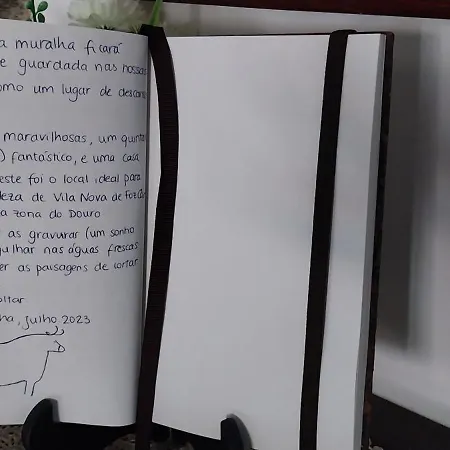 a muralha ficará
e guardada nas nossas
omo um lugar de descan
maravilhosas, um quinta
) fantástico, e uma casa
este foi o local ideal para
deza de Vila Nova de Foz Côa
a zona do Douro
as gravuras (um sonho
gulhar nas águas frescas
er as paisagens de cortar
oltar
ha, julho 2023